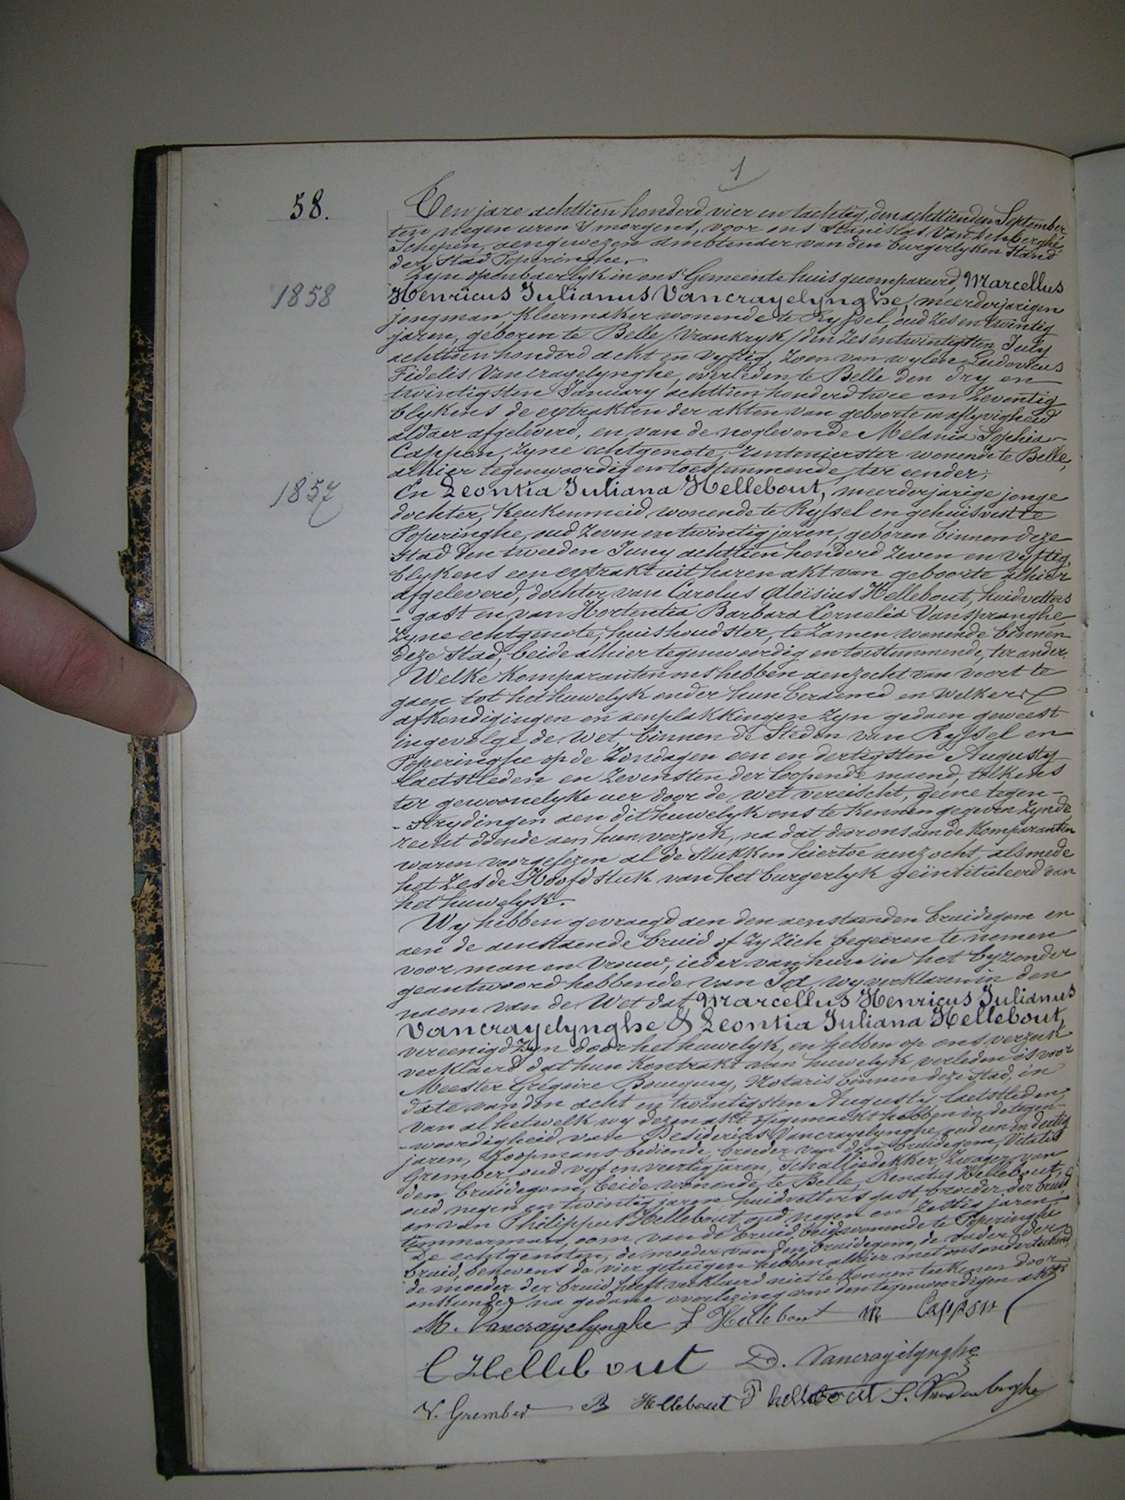 1
58.
Ten jare achttien honderd vier en tachtig, den achttienden September
ten negen uren 's morgens, voor ons Stanislas Vandenberghe
Schepen, aengewezen ambtenaer van den burgerlyken Stand
der Stad Poperinghe.
Zyn openbaerlyk in ons Gemeente huis gecompareerd Marcellus
1858
Henricus Julianus Vancrayelynghe, meerderjarigen
jongman, kleermaker wonende te Ryssel, oud zes en twintig
jaren, geboren te Belle /Vrankryk/ den zes en twintigsten July
achttien honderd acht en vyftig, zoon van wylen Ludovicus
Fidelis Vancrayelynghe, overleden te Belle den dry en
twintigsten January achttien honderd twee en zeventig
blykens de extrakten der akten van geboorte en aflyvigheid
aldaer afgeleverd, en van de noglevende Melania Sophia
Cappon, zyne echtgenote, rentenierster wonende te Belle,
alhier tegenwoordig en toestemmende, ter eender;
1857
En Leontia Juliana Hellebout, meerderjarige jonge
dochter, keukenmeid, wonende te Ryssel en gehuisvest te
Poperinghe, oud zeven en twintig jaren, geboren binnen deze
Stad den tweeden Juny achttien honderd zeven en vyftig,
blykens een extrakt uit haren akt van geboorte alhier
afgeleverd, dochter van Carolus Aloisius Hellebout, huidvetters
- gast en van Hortentia Barbara Cornelia Vanspranghe
zyne echtgenote, huishoudster, te zamen wonende binnen
deze stad, beide alhier tegenwoordig en toestemmende, ter ander.
Welke komparanten ons hebben aenzocht van voort te
gaen tot het huwelyk onder hun beraemd en welkers
afkondigingen en aenplakkingen zyn gedaen geweest
ingevolge de Wet, binnen de Steden van Ryssel en
Poperinghe op de Zondagen een en dertigsten Augusty
laetstleden en zevensten der loopende maend, telkens
ter gewoonelyke uer door de wet vereischt, geene tegen-
- strydingen aen dit huwelyk ons te kennen gegeven zynde
recht doende aen hun verzoek, na dat door ons aen de komparanten
waren voorgelezen al de stukken hiertoe aenzocht, alsmede
het Zesde Hoofdstuk van het burgerlyk geïntituleerd van
het huwelyk.
Wy hebben gevraegd aen den aenstaenden bruidegom en
aen de aenstaende bruid of zy zich begeeren te nemen
voor man en Vrouw, ieder van hun in het byzonder
geantwoord hebbende van Ja, wy verklaren in den
naem van de Wet dat Marcellus Henricus Julianus
Vancrayelynghe & Leontia Juliana Hellebout,
vereenigd zyn door het huwelyk, en hebben op ons verzoek
verklaerd dat hun kontrakt van huwelyk verleden is voor
Meester Grégoire Notaris binnen deze Stad, in
date van den acht en twintigsten Augusty laetstleden,
van al hetwelk wy dezen akt opgemaekt hebben in de tegen-
- woordigheid van Desiderius Vancrayelynghe oud een en dertig
jaren, koopmans bediende, broeder van den bruidegom, Vitalis
Grember, oud vyf en veertig jaren, Schalliedekker, Zwager van
den bruidegom, beide wonende te Belle, Renatus Hellebout,
oud negen en twintig jaren, huidvetters gast broeder der bruid
en van Philippus Hellebout, oud negen en zestig jaren
timmerman, oom van de bruid, beide wonende te Poperinghe
De echtgenoten, de moeder van den bruidegom, de vader der
bruid, benevens de vier getuigen hebben alhier met ons onderteekend
de moeder der bruid heeft verklaerd niet te konnen teekenen door
onkunde, na gedane overlezing van den tegenwoordigen akt
M. Vancrayelynghe L Hellebout M Cappon
C Hellebout D. Vancrayelynghe
V. Grember R Hellebout P hellebout S. Vandenberghe